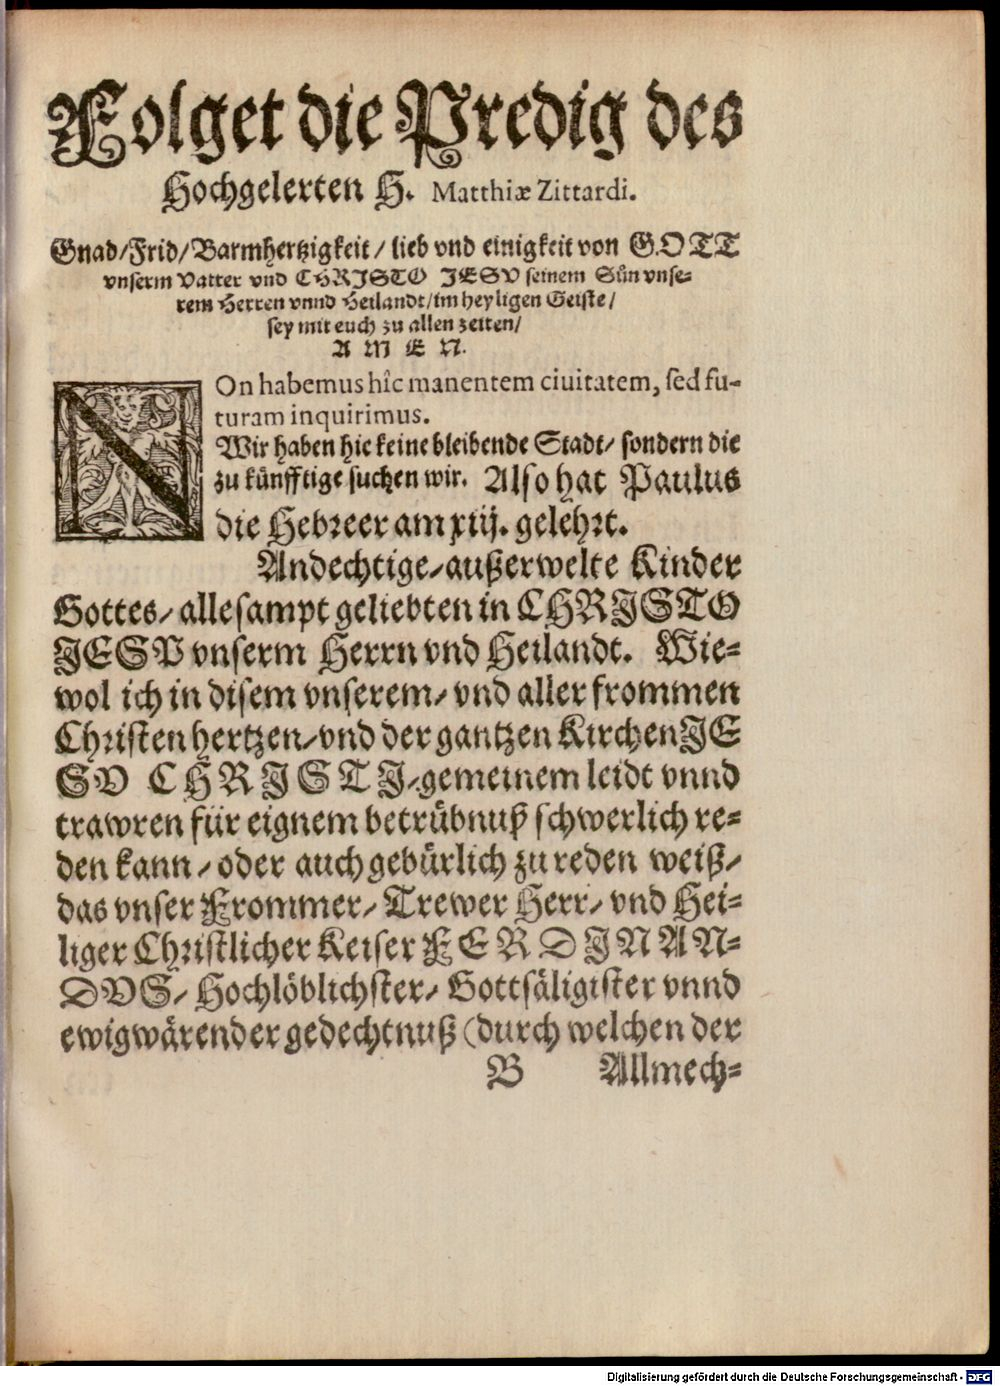 Folget die Predig des
Hochgelerten H. Matthiæ Zittardi.
Gnad/Frid/Barmhertzigkeit/ lieb vnd einigkeit von GOTT
vnserm Vatter vnd CHRISTO JESV seinem Sün vnse-
rem Herren vnnd Heilandt/im heyligen Geiste/
sey mit euch zu allen zeiten/
A M E N.
NOn habemus hîc manentem ciuitatem, sed fu-
turam inquirimus.
Wir haben hie keine bleibende Stadt/ sondern die
zu künfftige suchen wir. Also hat Paulus
die Hebreer am xiij. gelehrt.
Andechtige/außerwelte Kinder
Gottes/ allesampt geliebten in CHRISTO
JESV vnserm Herrn vnd Heilandt. Wie-
wol ich in disem vnserem/ vnd aller frommen
Christen hertzen/vnd der gantzen Kirchen JE
SV CHRISTI/gemeinem leidt vnnd
trawren für eignem betrübnuß schwerlich re-
den kann/ oder auch gebürlich zu reden weiß/
das vnser Frommer/ Trewer Herr/ vnd Hei-
liger Christlicher Keiser FERDINAN-
DVS/ Hochlöblichster/ Gottsäligister vnnd
ewigwärender gedechtnuß (durch welchen der
B Allmech-
Digitalisierung gefördert durch die Deutsche Forschungsgemeinschaft - DFG